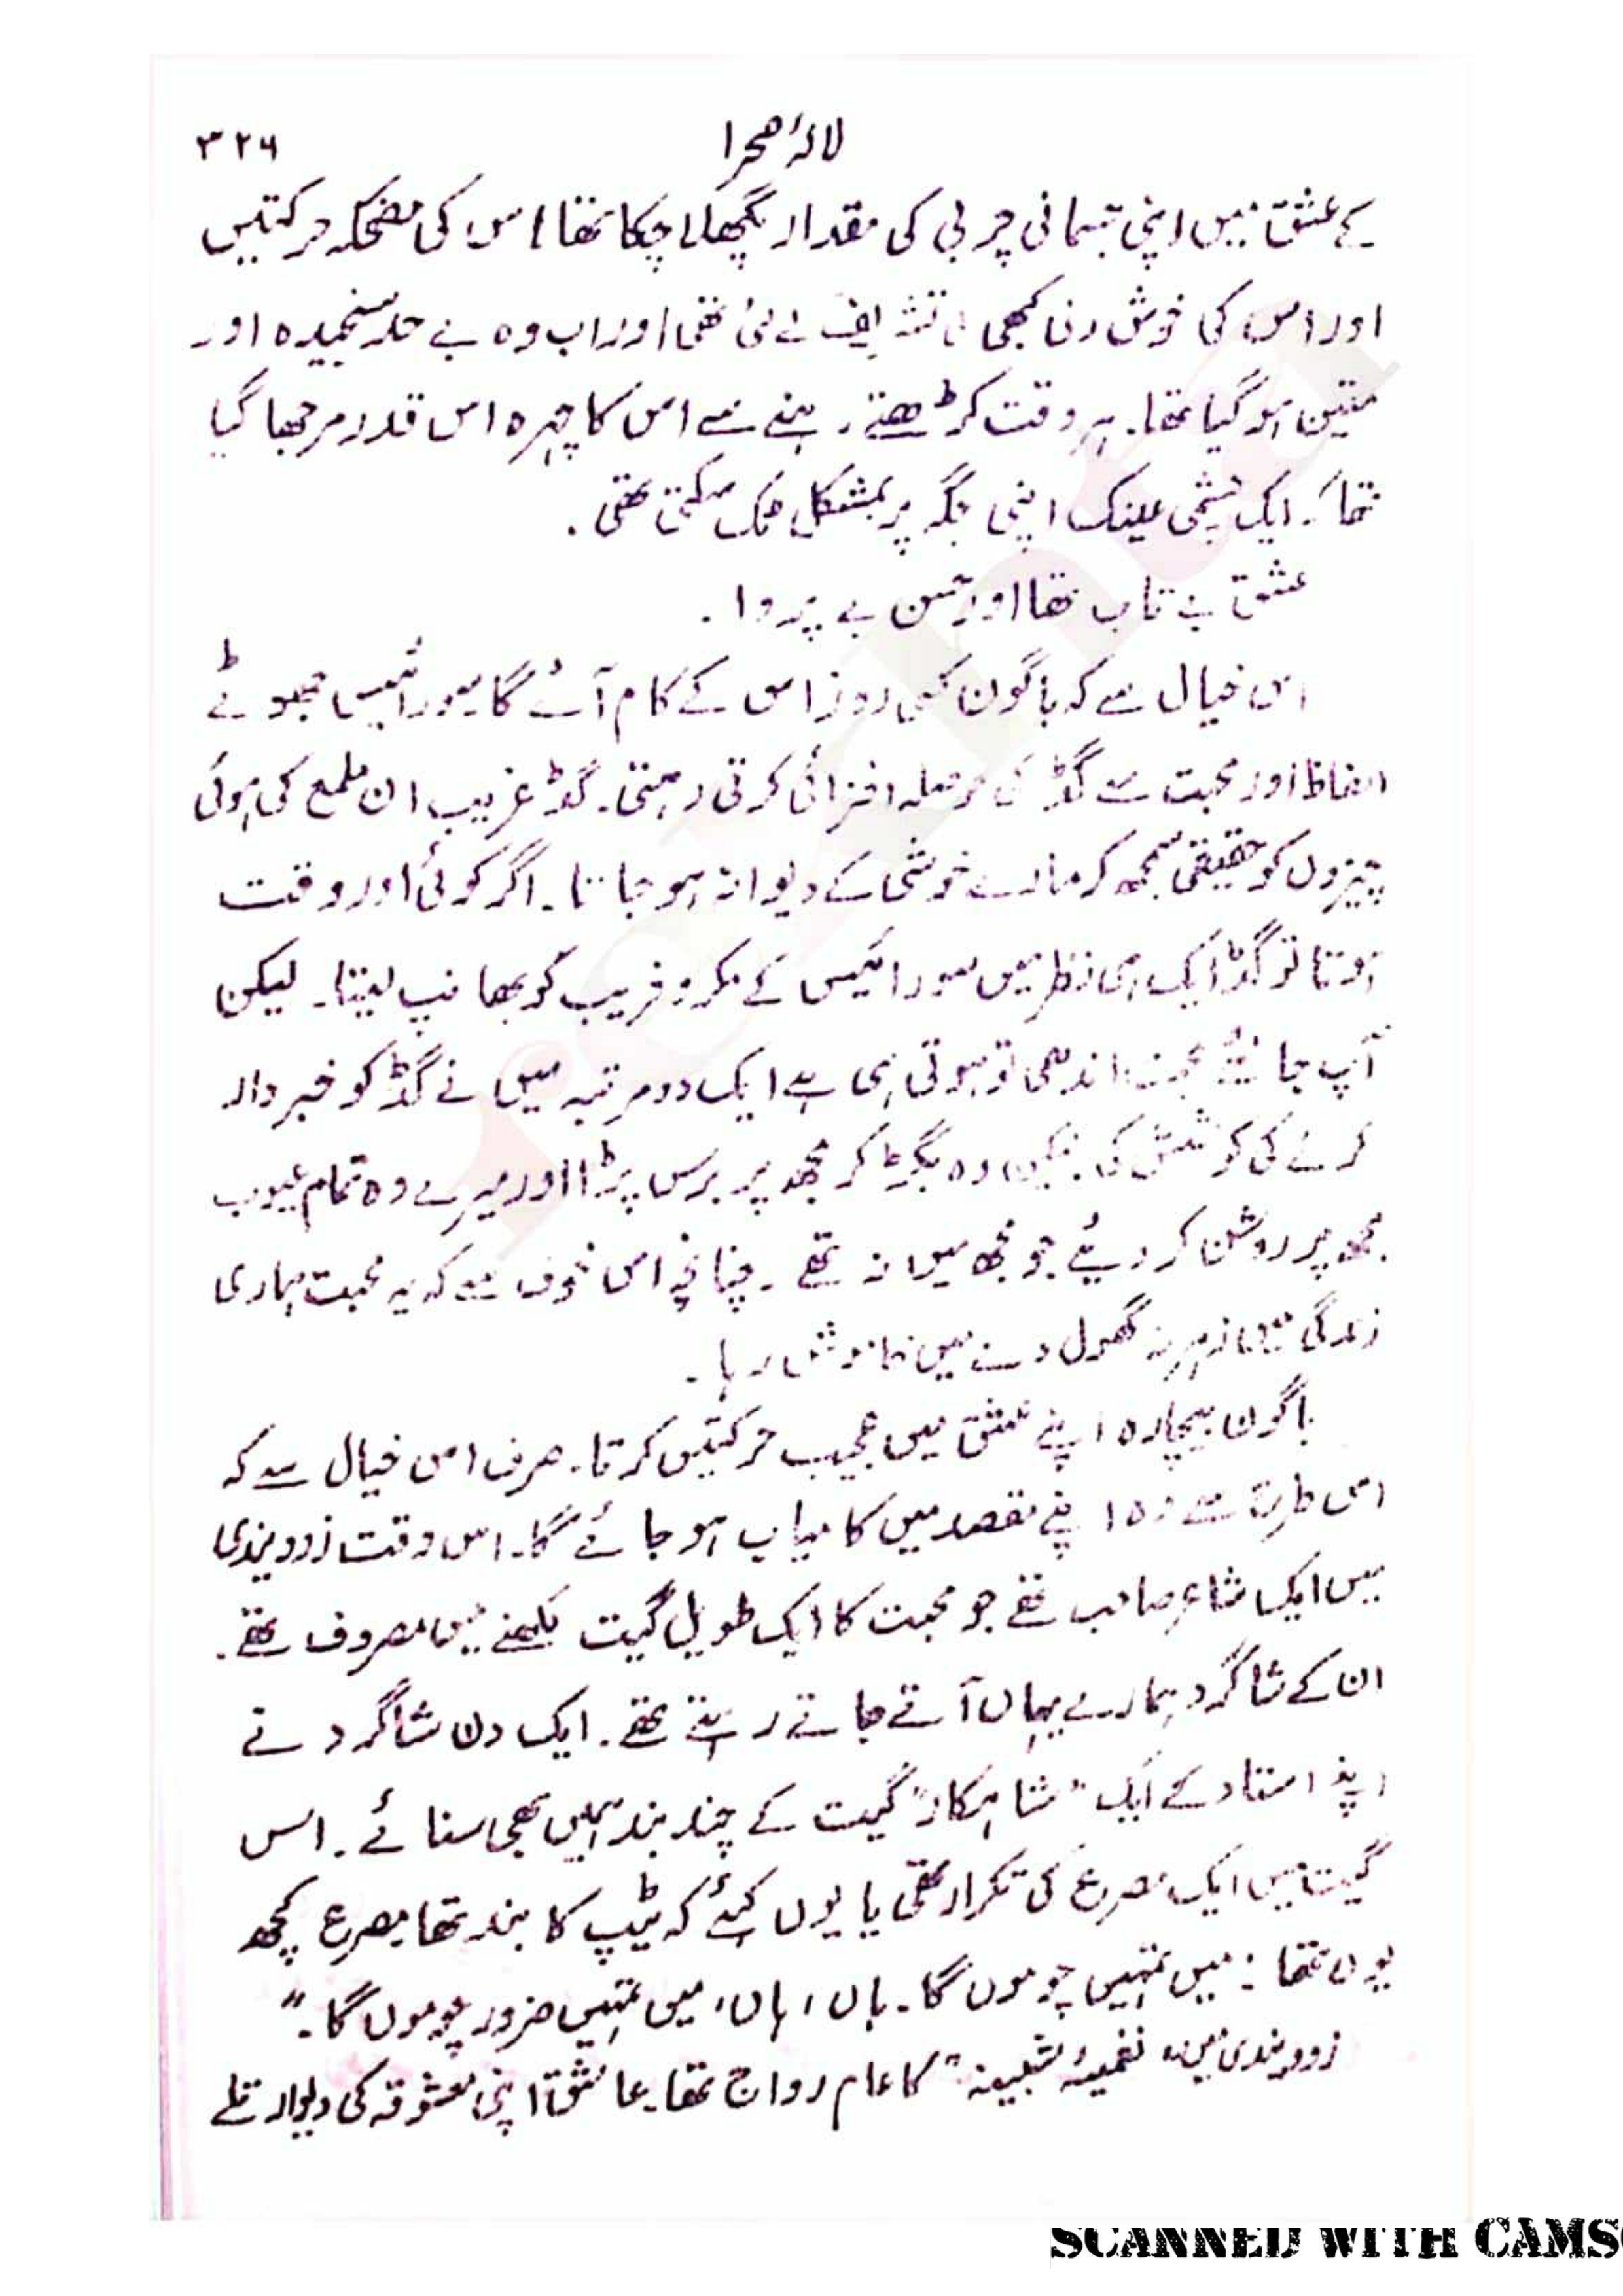 لالۂ صحرا
۳۲۶
کے عشق میں اپنی جسمانی چربی کی مقدار پگھلا چکا تھا اس کی مضحکہ حرکتیں
اور اس کی خوش دلی کبھی کی تشریف لے گئی تھی اور اب وہ بے حد سنجیدہ اور
متین ہو گیا تھا۔ ہر وقت کڑھتے رہنے سے اس کا چہرہ اس قدر مرجھا گیا
تھا کہ ایک چشمی عینک اپنی جگہ پر بمشکل ٹک سکتی تھی۔
عشق بے تاب تھا اور حسن بے پروا۔
اس خیال سے کہ باگون کسی روز اس کے کام آئے گا سورائیس جھوٹے
الفاظ اور محبت سے گڈ کی حوصلہ افزائی کرتی رہتی۔ گڈ غریب ان ملمع کی ہوئی
چیزوں کو حقیقی سمجھ کر مارے خوشی کے دیوانہ ہو جاتا۔ اگر کوئی اور وقت
ہوتا تو گڈ ایک ہی نظر میں سورائیس کے مکر و فریب کو بھانپ لیتا۔ لیکن
آپ جانئے محبت اندھی تو ہوتی ہی ہے ایک دو مرتبہ میں نے گڈ کو خبردار
کرنے کی کوشش کی لیکن وہ بگڑ کر مجھ پر برس پڑا اور میرے وہ تمام عیوب
مجھ پر روشن کر دیئے جو مجھ میں نہ تھے۔ چنانچہ اس خوف سے کہ یہ محبت ہماری
زندگی میں زہر نہ گھول دے میں خاموش رہا۔
باگون بیچارہ اپنے عشق میں عجیب حرکتیں کرتا۔ صرف اس خیال سے کہ
اس طرح سے وہ اپنے مقصد میں کامیاب ہو جائے گا۔ اس وقت زوویندی
میں ایک شاعر صاحب تھے جو محبت کا ایک طویل گیت لکھنے میں مصروف تھے۔
ان کے شاگرد ہمارے یہاں آتے جاتے رہتے تھے۔ ایک دن شاگرد نے
اپنے استاد کے ایک "شاہکار" گیت کے چند بند ہمیں بھی سنائے۔ اس
گیت میں ایک مصرع کی تکرار تھی یا یوں کہئے کہ ٹیپ کا بند تھا مصرع کچھ
یوں تھا: میں تمہیں چوموں گا۔ ہاں، ہاں، میں تمہیں ضرور چوموں گا۔"
زوویندی میں "نغمیۂ شبینہ" کا عام رواج تھا۔ عاشق اپنی معشوقہ کی دیوار تلے
SCANNED WITH CAMS